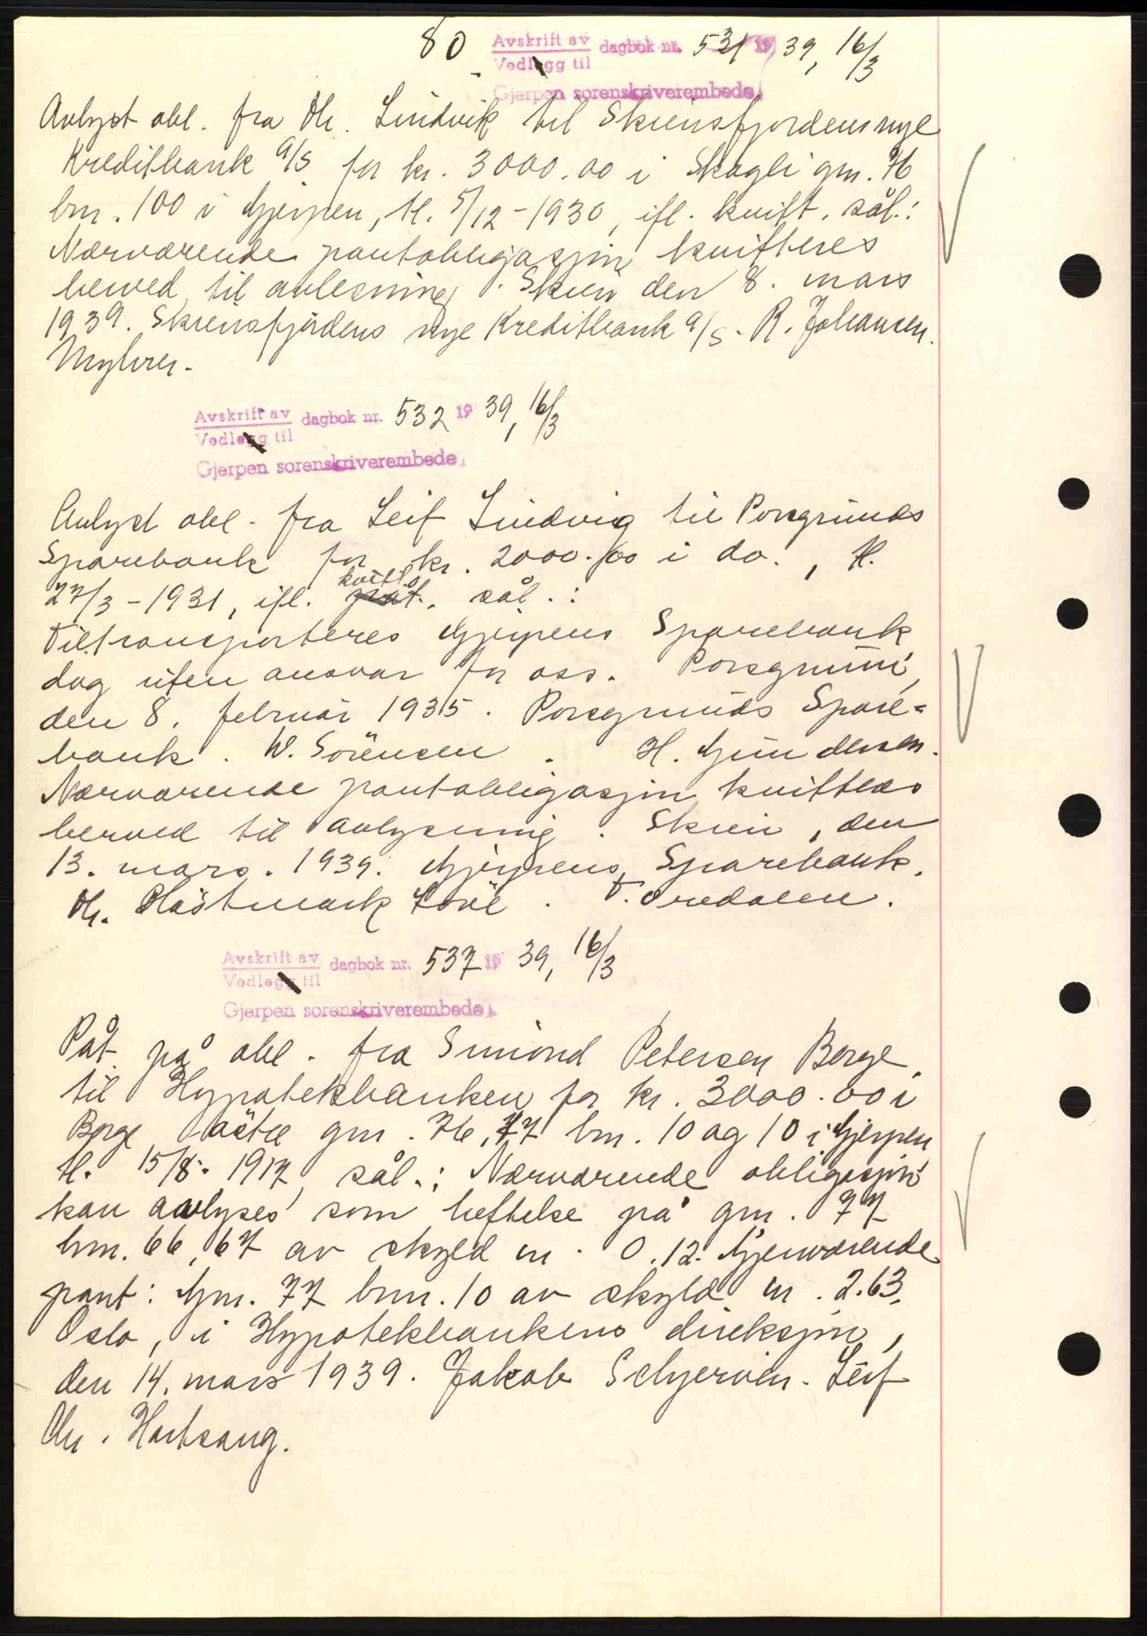 80 Avskrift av dagbok nr. 531 1939, 16/3
Vedlegg til
Gjerpen sorenskriverembede
Avlyst obl. fra Chr. Lindvik til Skiensfjordens nye
Kreditbank a/s for kr. 3000.00 i Skogli gnr. 76
bnr. 100 i Gjerpen, tl. 5/12-1930, ifl. kvitt. sål.:
Nærværende pantobligasjon kvitteres
herved til avlesning. Skien den 8. mars
1939. Skiensfjordens nye Kreditbank a/s. R. Johansen.
Myhrer.
Avskrift av dagbok nr. 532 1939, 16/3
Vedlegg til
Gjerpen sorenskriverembede
Avlyst obl. fra Leif Lindvig til Porsgrunds
Sparebank for kr. 2000.00 i do., tl.
27/3-1931, ifl. kvitt. sål.:
Tiltransporteres Gjerpens Sparebank
dog uten ansvar for oss. Porsgrunn,
den 8. februar 1935. Porsgrunds Spare-
bank. W. Sörensen. H. Gundersen.
Nærværende pantobligasjon kvitteres
herved til avlysning. Skien, den
13. mars. 1939. Gjerpens Sparebank.
Chr. Høstmark .
Avskrift av dagbok nr. 537 1939, 16/3
Vedlegg til
Gjerpen sorenskriverembede
Påt. på obl. fra Simond Petersen Borge
til Hypotekbanken for kr. 3000.00 i
Borge østre gnr. 76, 77 bnr. 10 og 10 i Gjerpen
tl. 15/8-1917, sål.: Nærværende obligasjon
kan avlyses som heftelse på gnr. 77
bnr. 66, 67 av skyld m. 0.12. Gjenværende
pant: Gnr. 77 bnr. 10 av skyld m. 2.63.
Oslo, i Hypotekbankens direksjon,
den 14. mars 1939. Jakob Schjerven. Leif
Chr. Hartsang.